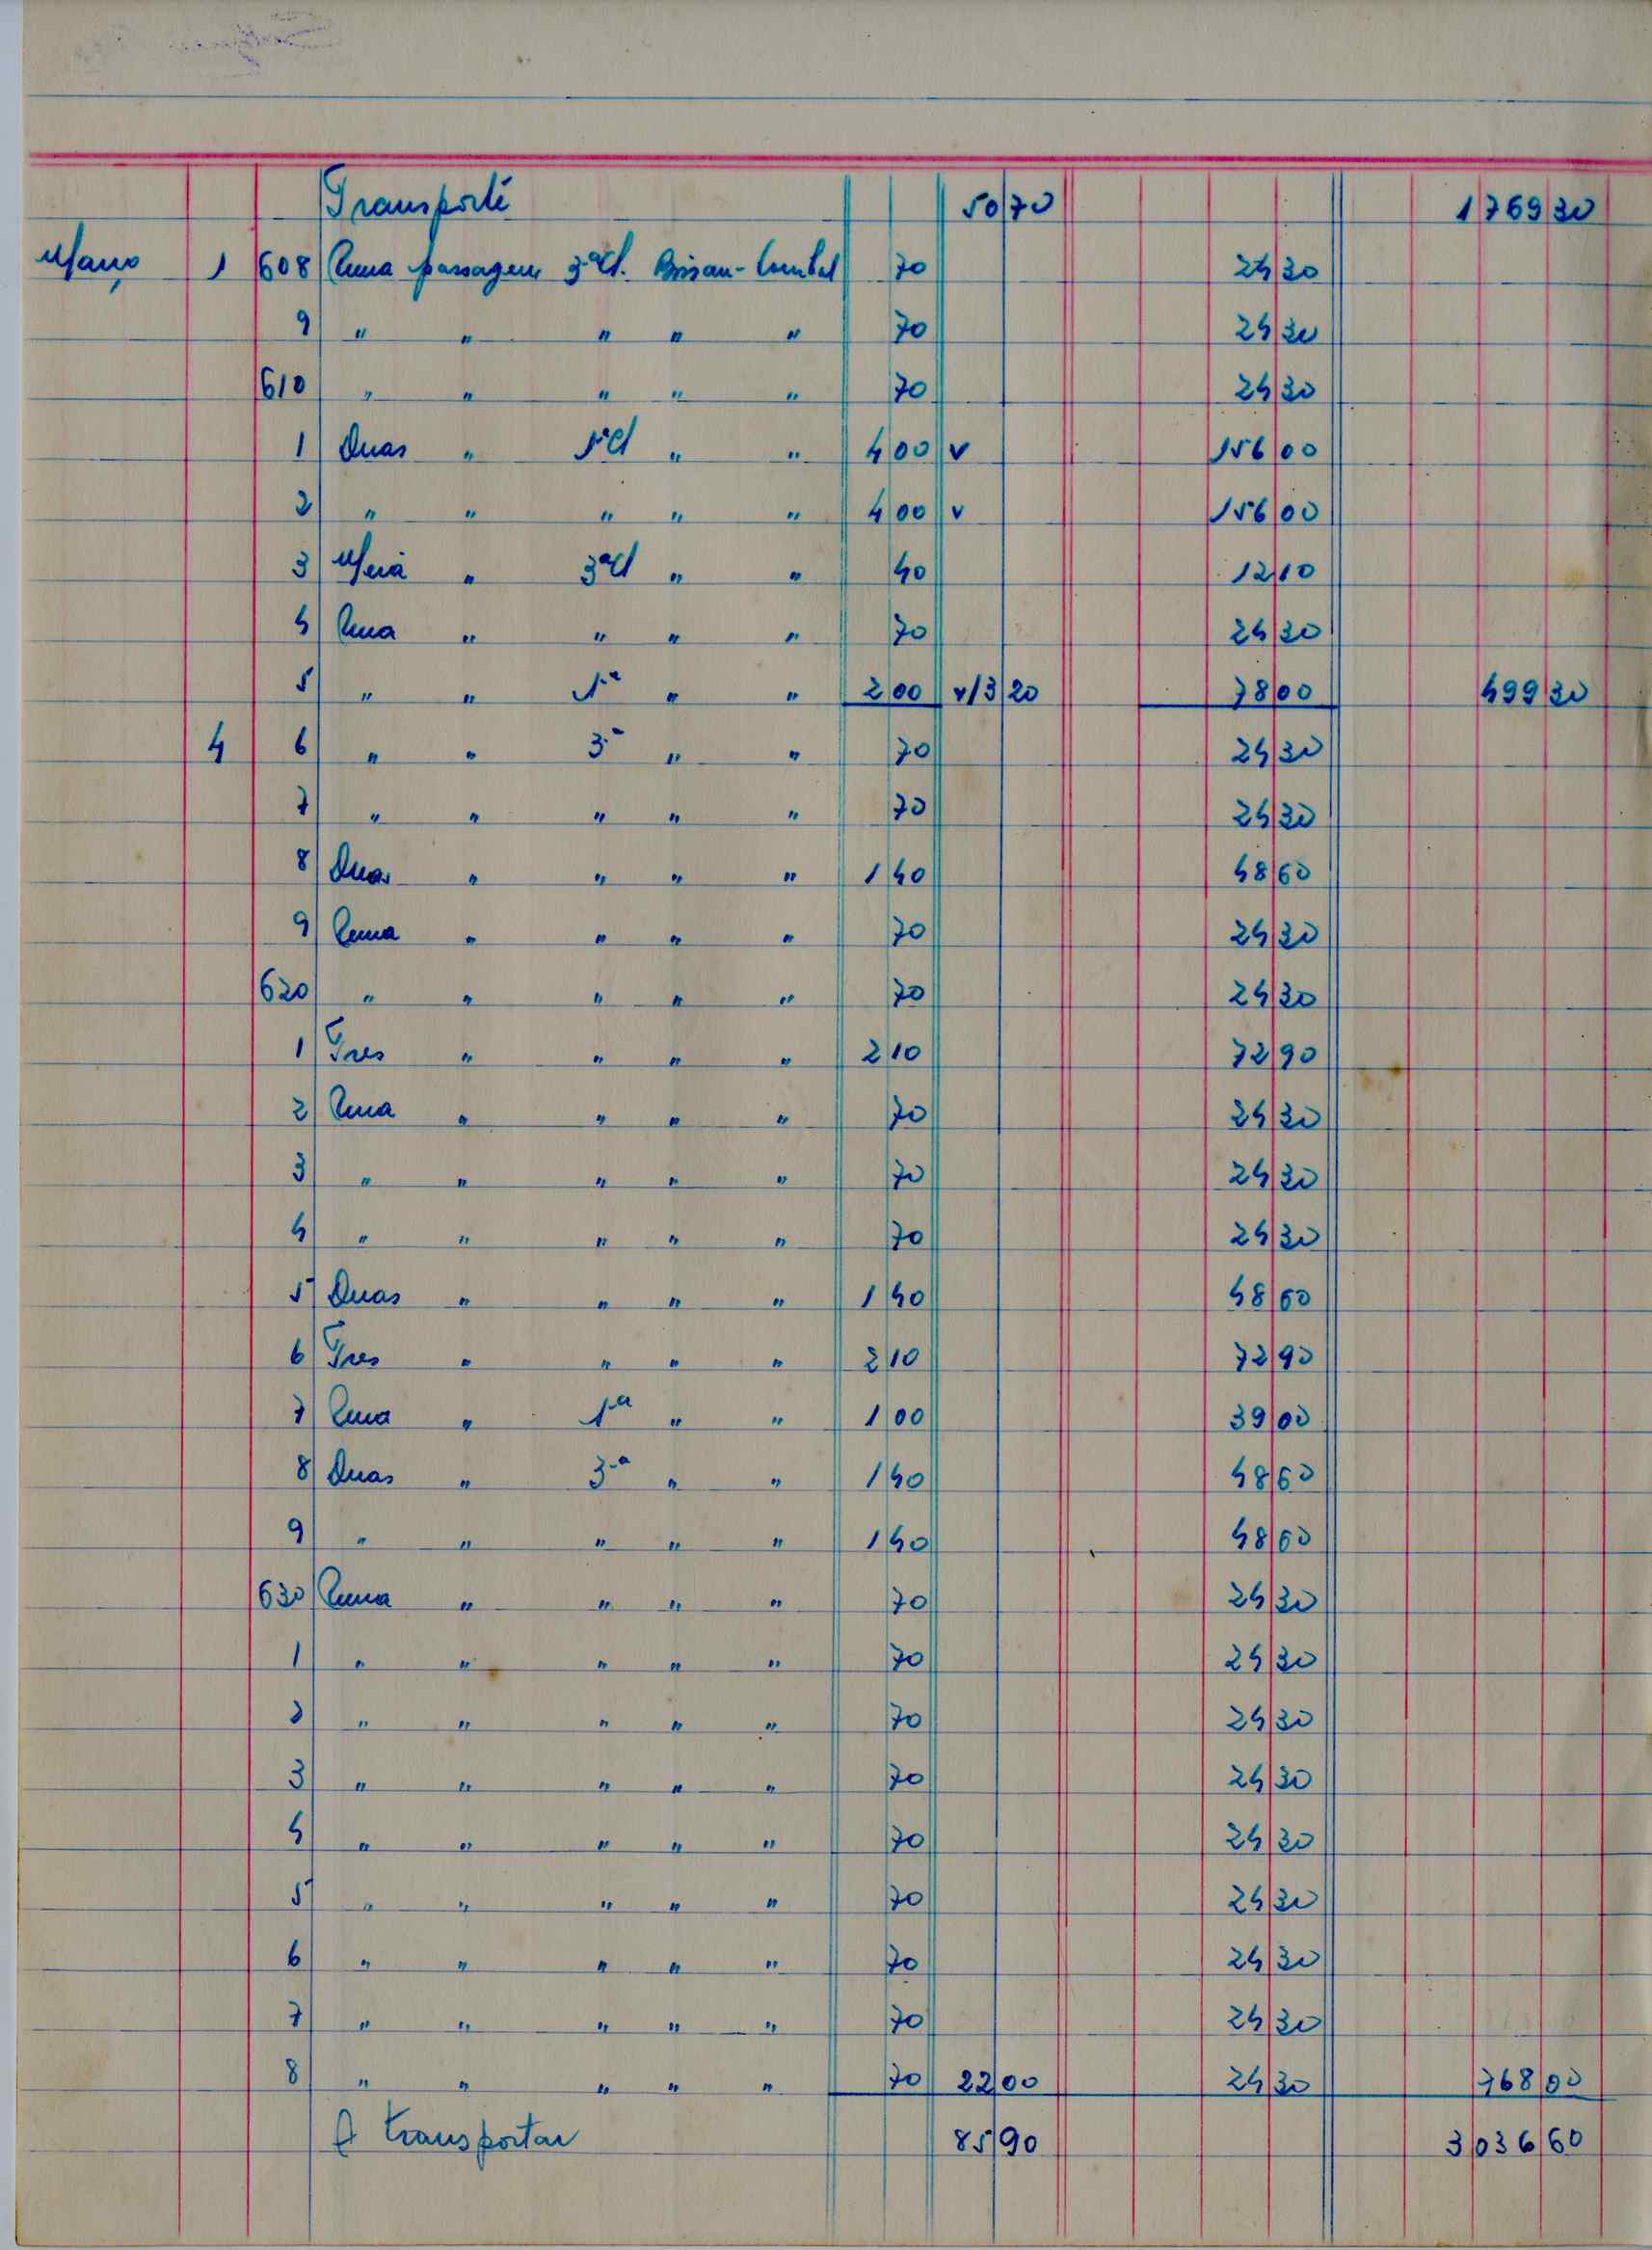 Transporte 50 70 1 769 30
Março 1 608 Uma passagem 3ª cl. Bissau-Cumbal 70 24 30
9 " " " " " 70 24 30
610 " " " " " 70 24 30
1 Duas " 1ª cl " " 4 00 v 156 00
2 " " " " " 4 00 v 156 00
3 Meia " 3ª cl " " 40 12 10
4 Uma " " " " 70 24 30
5 " " 1ª " " 2 00 v 13 20 78 00 499 30
4 6 " " 3ª " " 70 24 30
7 " " " " " 70 24 30
8 Duas " " " " 1 40 48 60
9 Uma " " " " 70 24 30
620 " " " " " 70 24 30
1 Tres " " " " 2 10 72 90
2 Uma " " " " 70 24 30
3 " " " " " 70 24 30
4 " " " " " 70 24 30
5 Duas " " " " 1 40 48 60
6 Tres " " " " 2 10 72 90
7 Uma " 1ª " " 1 00 39 00
8 Duas " 3ª " " 1 40 48 60
9 " " " " " 1 40 48 60
630 Uma " " " " 70 24 30
1 " " " " " 70 24 30
2 " " " " " 70 24 30
3 " " " " " 70 24 30
4 " " " " " 70 24 30
5 " " " " " 70 24 30
6 " " " " " 70 24 30
7 " " " " " 70 24 30
8 " " " " " 70 22 00 24 30 768 00
A transportar 85 90 3 036 60